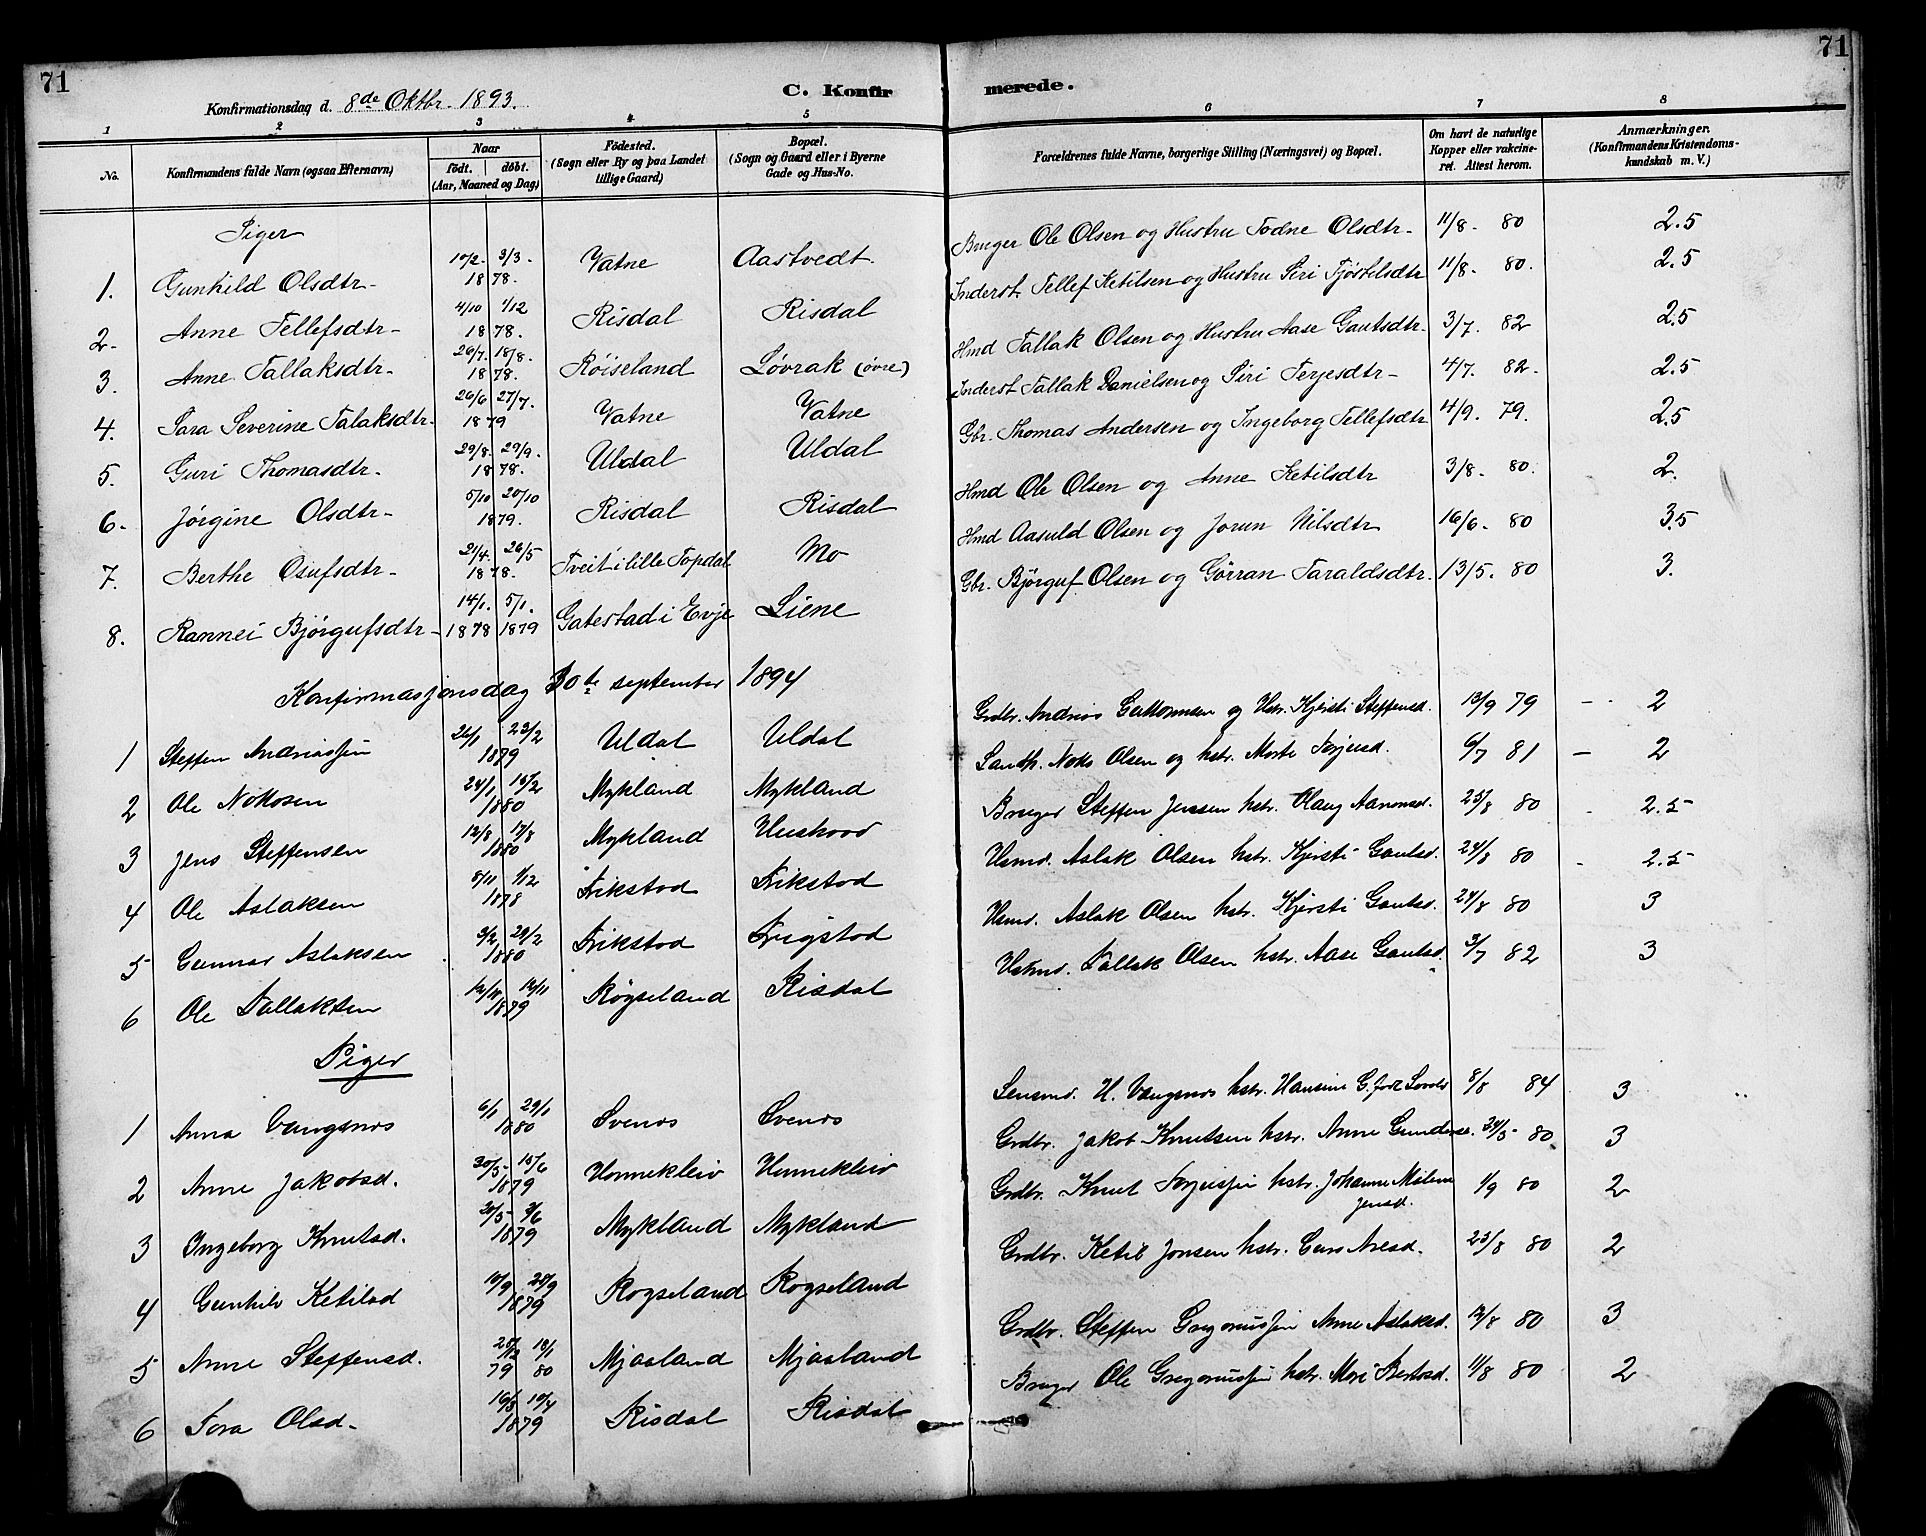 71
71
Konfirmationsdag d. 8de Oktbr. 1893.
C. Konfirmerede.
1 2 3 4 5 6 7 8
No.
Konfirmandens fulde Navn (ogsaa Efternavn)
Naar
født. døbt.
(Aar, Maaned og Dag)
Fødested.
(Sogn eller By og paa Landet tillige Gaard)
Bopæl.
(Sogn og Gaard eller i Byerne Gade og Hus-No.
Forældrenes fulde Navne, borgerlige Stilling (Næringsvei) og Bopæl.
Om havt de naturlige Kopper eller vakcineret. Attest herom.
Anmærkninger.
(Konfirmandens Kristendomskundskab m. V.)
Piger
1. Gunhild Olsdtr- 10/2. 3/3. 1878. Vatne Aastvedt. Bruger Ole Olsen og Hustru Todne Olsdtr- 11/8- 80 2.5
2- Anne Tellefsdtr- 4/10 1/12 1878. Risdal Risdal Inderst. Tellef Ketilsen og Hustru Siri Tjøstilsdtr 11/8- 80. 2.5
3. Anne Tallaksdtr- 26/7. 18/8. 1878. Røiseland Løvrak (øvre) Hmd Tallak Olsen og Hustru Aase Gautsdtr- 3/7. 82 2.5
4. Sara Severine Talaksdtr. 26/6 27/7. 1879 Vatne Vatne Inderst Tallak Danielsen og Siri Terjesdtr- 4/7. 82- 2.5
5. Guri Thomasdtr. 29/8. 29/9. 1878. Uldal Uldal Gbr. Thomas Andersen og Ingeborg Tellefsdtr 4/9. 79. 2.5
6- Jørgine Olsdtr- 5/10 20/10 1879. Risdal Risdal Hmd Ole Olsen og Anne Ketilsdtr 3/8- 80. 2.
7. Berthe Osufsdtr- 21/4. 26/5 1878. Tveit i lille Topdal Mo Hmd Aasuld Olsen og Jorun Nilsdtr 16/6- 80 3.5
8. Rannei Bjørgufsdtr- 14/1. 5/1. 1878 1879 Gatestad i Evje Liene Gbr. Bjørguf Olsen og Gørran Taraldsdtr. 13/5. 80 3.
Konfirmasjonsdag 30te september 1894
1 Steffen Andreassen 26/1 23/2 1879 Uldal Uldal Grdbr. Andreas Guttormsen og Hstr. Kjersti Steffensd. 13/9 79 - 2
2 Ole Notosen 24/1 15/2 1880 Mykland Mykland Olsen og hstr. 6/7 81 - 2
3 Jens Steffensen 12/8 17/8 1880 Mykland Bruger Steffen Jenssen hstr. Olaug Aanonsd. 25/8 80 2.5
4 Ole Aslaksen 5/11 1/12 1878 Trikstod Trikstod Usmd. Aslak Olsen hstr. Kjersti Gautsd. 24/8 80 - 2.5
5 Gunnar Aslaksen 3/2 29/2 1880 Trikstod Trigstod Usmd. Aslak Olsen hstr. Kjersti Gautsd. 24/8 80 3
6 Ole Tallaksen 12/11 1879 Røyseland Risdal Usmd. Tallak Olsen hstr. Aase Gautsd. 3/7 82 3
Piger
1 Anna Vangsnos 6/1 29/1 1880 Svenos Svenos Lensmd. H. Vangsnos hstr. Hansine G. 8/8 84 3 "
2 Anne Jakobsd. 30/5- 15/6 1879 Honnekleiv Hunnekleiv Grdbr. Jakob Knutsen hstr. Anne 24/5- 80. 3
3 Ingeborg Knutsd. 1879 Mykland Mykland Grdbr. Knut Terjussen hstr. Johanne Malene Jensd. 1/9 80 2
4 Gunhild Ketilsd 10/9 28/9 1879 Røyseland Røyseland Grdbr. Ketil Jonsen hstr. Guro Aresd. 23/8 80 2
5 Anne Steffensd. 79 80 Mjaaland Mjaaland Grdbr. Steffen Gregoriussen Anne Aslaksd. 12/8 80 3
6 Tora Olsd. 1879 Risdal Risdal Bruger Ole Gregoriussen hstr. 11/8 80 2